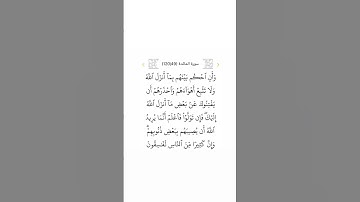 سورة المائدة (49\120)
وَأَنِ ٱحْكُم بَيْنَهُم بِمَآ أَنزَلَ ٱللَّهُ
وَلَا تَتَّبِعْ أَهْوَآءَهُمْ وَٱحْذَرْهُمْ أَن
يَفْتِنُوكَ عَنۢ بَعْضِ مَآ أَنزَلَ ٱللَّهُ
إِلَيْكَ ۖ فَإِن تَوَلَّوْا۟ فَٱعْلَمْ أَنَّمَا يُرِيدُ
ٱللَّهُ أَن يُصِيبَهُم بِبَعْضِ ذُنُوبِهِمْ ۗ
وَإِنَّ كَثِيرًا مِّنَ ٱلنَّاسِ لَفَـٰسِقُونَ